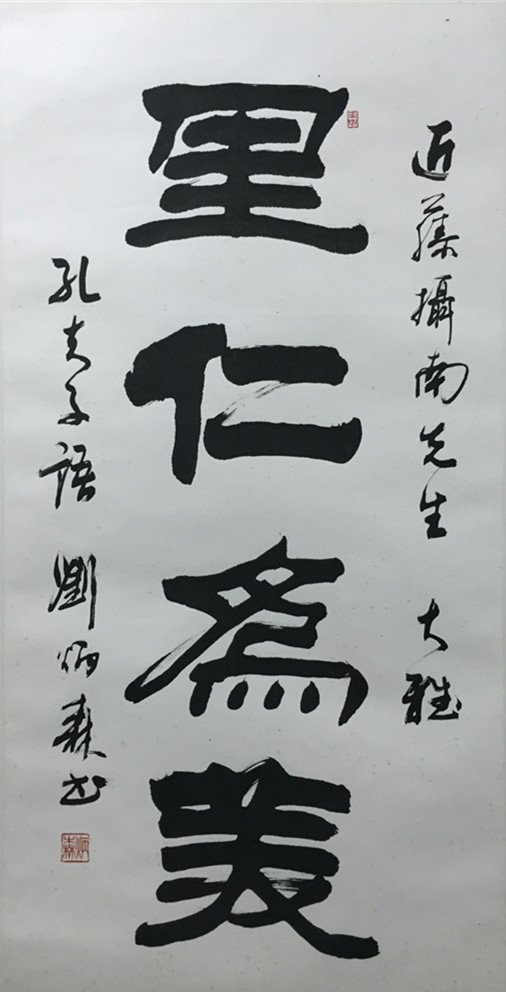 近藤攝南先生 大雅
里仁為美
孔夫子語 劉炳森书
炳森